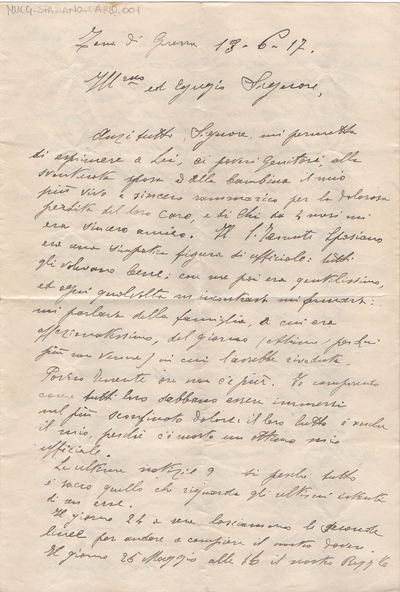 Zona di Guerra 13-6-17.
Ill.mo ed Egregio Signore,
Anzi tutto, Signore, mi permetta
di esprimere a Lei, ai poveri genitori alla
sventurata sposa e alla bambina il mio
più vivo e sincero rammarico per la dolorosa
perdita del loro caro, e di chi da 2 mesi mi
era sincero amico. Il S. Tenente
era una simpatica figura di ufficiale: tutti
gli volevano bene; con me poi era gentilissimo,
ed ogni qualvolta m'incontrava mi fermava:
mi parlava della famiglia, a cui era
affezionatissimo, del giorno
più non venne) in cui l'avrebbe riveduta.
Povero tenente ora non c'è più. Io comprendo
come tutti loro debbano essere immersi
nel più sconfinato dolore: il loro lutto è anche
il mio, perchè c'è morto un ottimo mio
ufficiale.
Le ultime notizie? si perchè tutto
è sacro quello che riguarda gli ultimi istanti
di un eroe.
Il giorno 24 a sera lasciammo le seconde
linee per andare a compiere il nostro dovere.
Il giorno 25 Maggio alle 16 il nostro